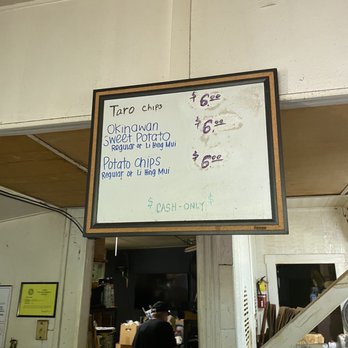 Taro Chips $ 6.00
Okinawan $ 6.00
Sweet Potato
Regular or Li Hing Mui
Potato Chips $ 6.00
Regular or Li Hing Mui
$ CASH-ONLY $